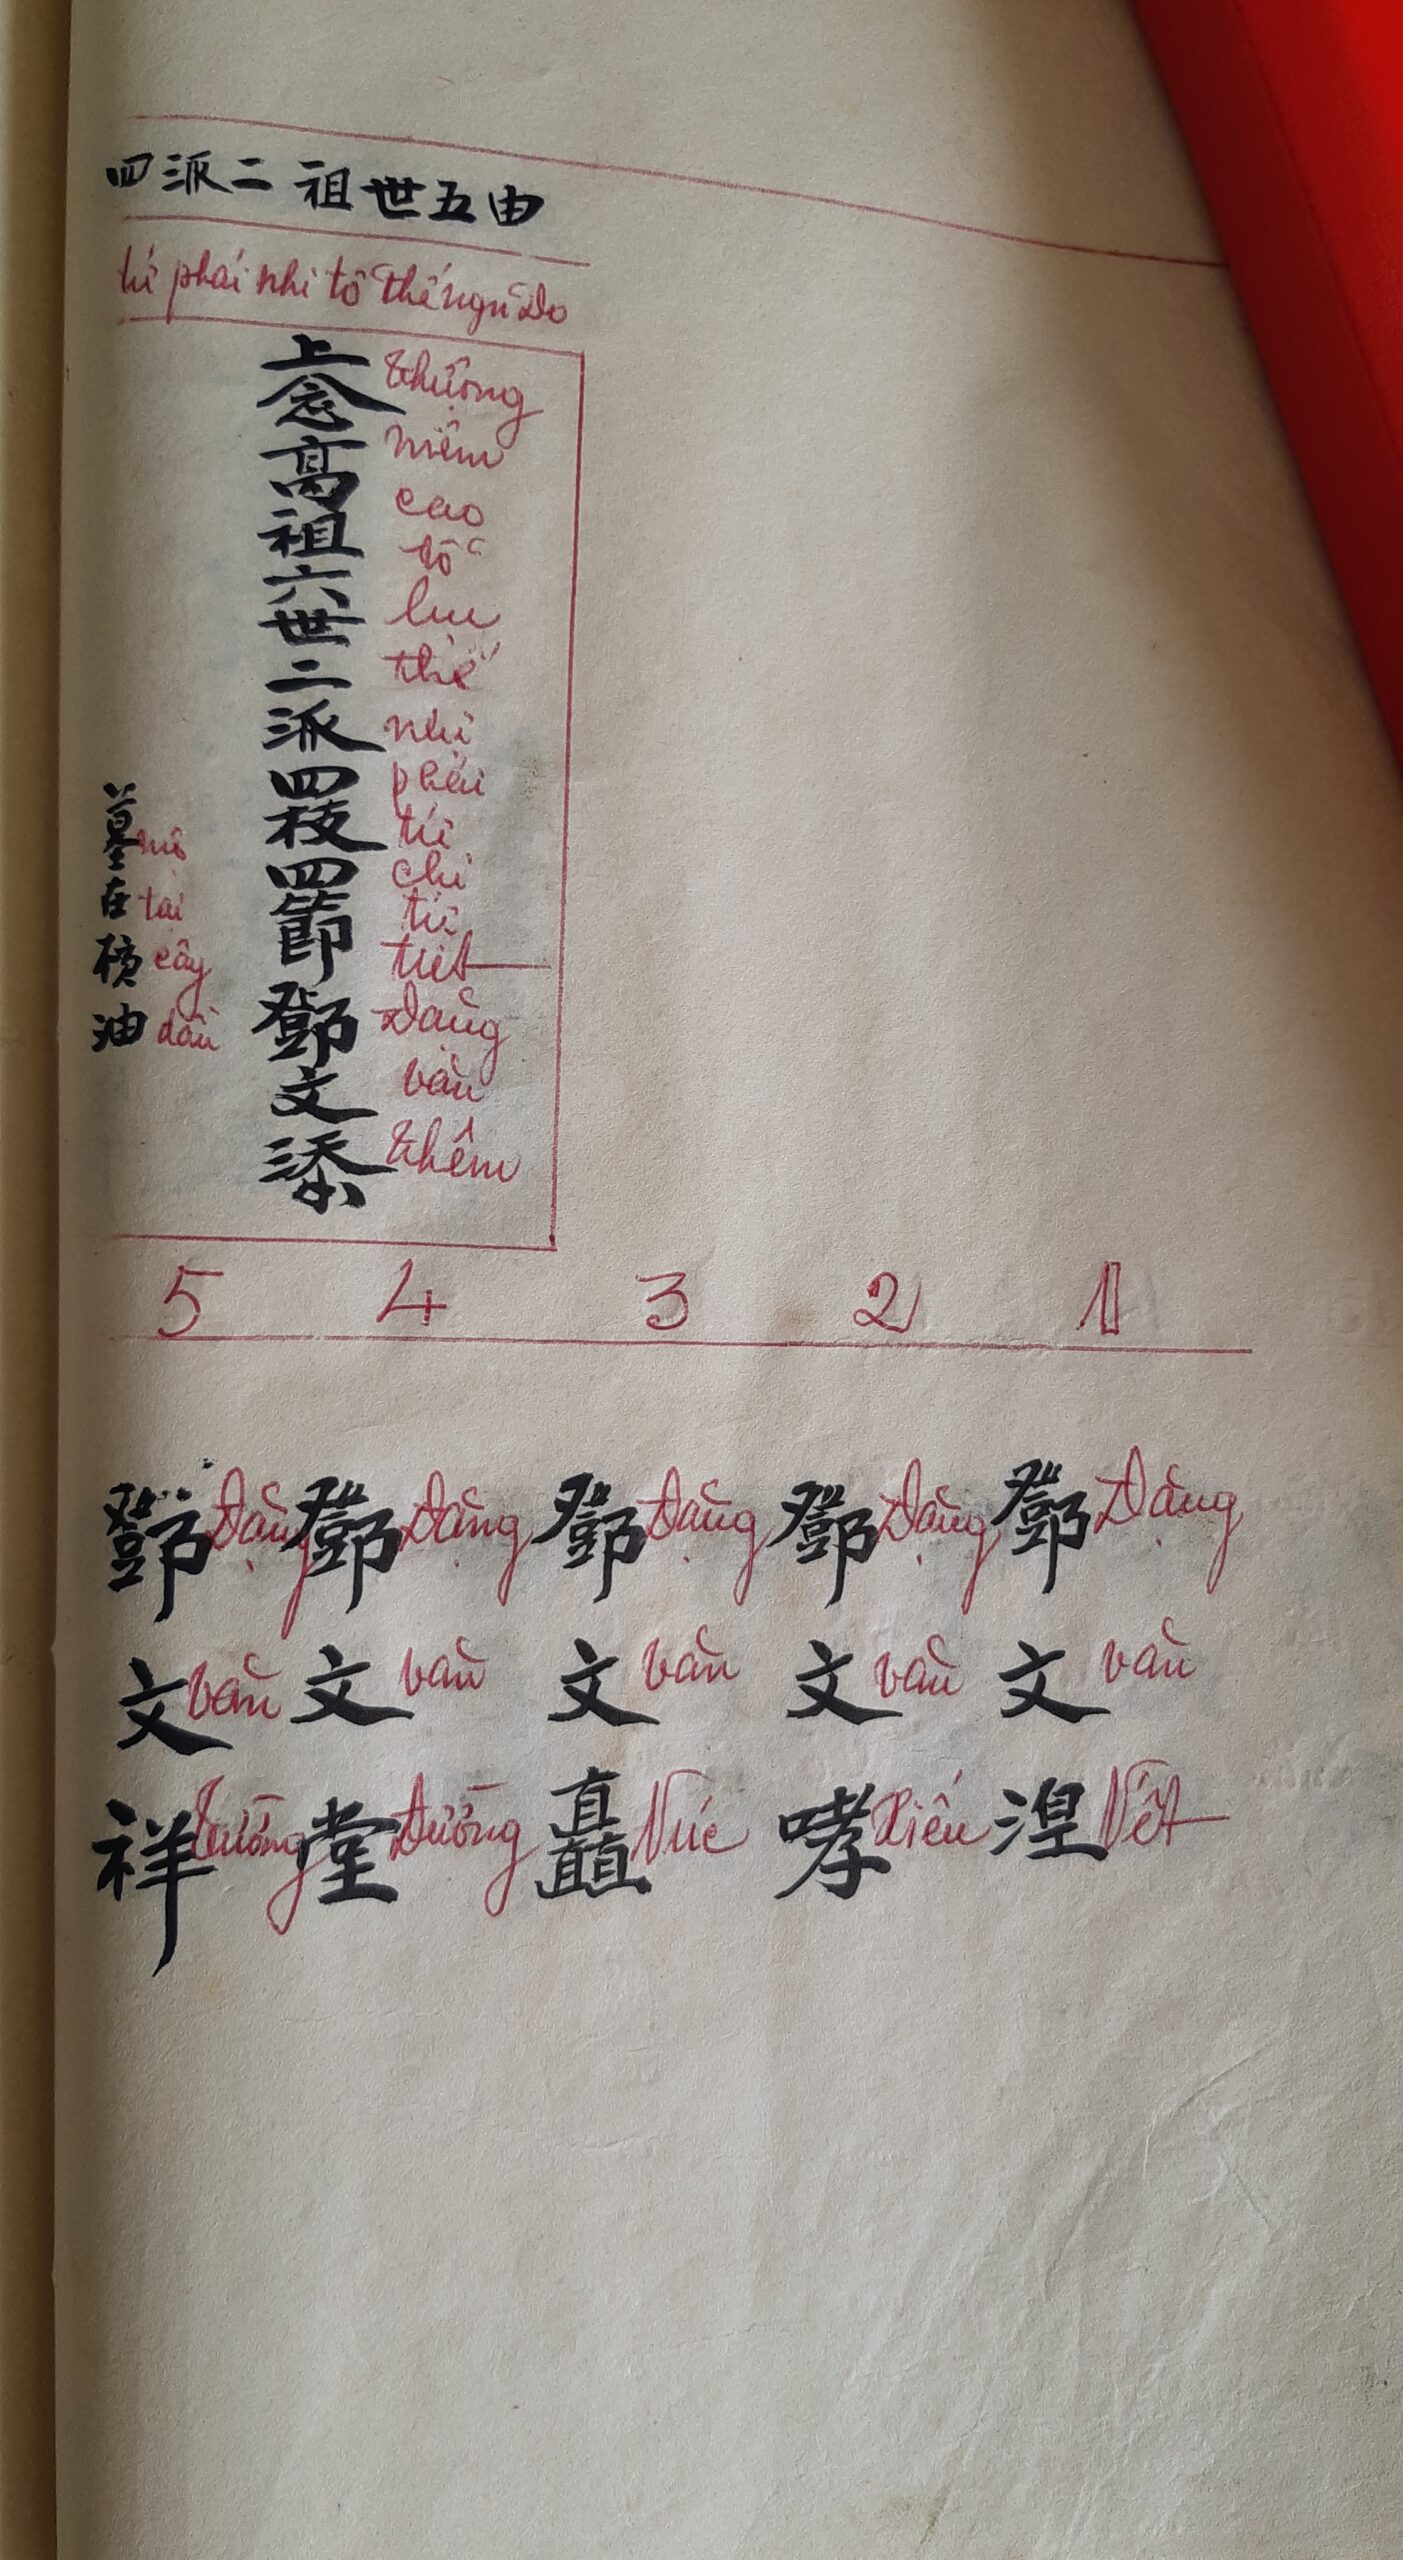 四派二祖世五由
tứ phái nhị tổ thế ngũ Do
上念高祖六世二派四枝四節鄧文添
thượng niệm cao tổ lục thế nhị phái tứ chi tứ tiết Đặng văn thêm
墓在槙油
mộ tại cây dầu
5 4 3 2 1
鄧文湼
Đặng văn Nết
鄧文哮
Đặng văn Hiếu
鄧文矗
Đặng văn Núc
鄧文堂
Đặng văn Đường
鄧文祥
Đặng văn tường